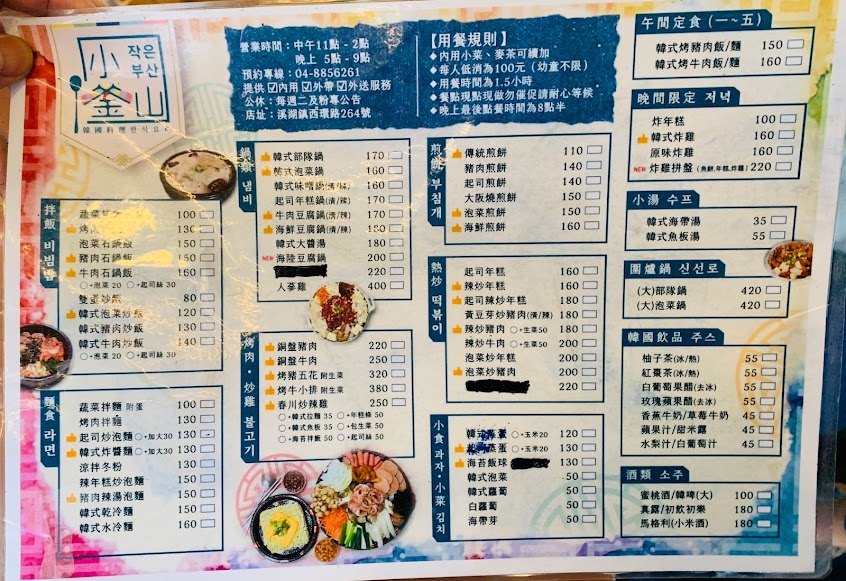 小釜山
작은
부산
韓國料理한식요리
營業時間：中午11點 - 2點
晚上 5點 - 9點
預約專線：04-8856261
提供☑內用☑外帶☑外送服務
公休：每週二及粉專公告
店址：溪湖鎮西環路264號
【用餐規則】
◆內用小菜、麥茶可續加
◆每人低消為100元（幼童不限）
◆用餐時間為1.5小時
◆餐點現點現做勿催促請耐心等候
◆晚上最後點餐時間為8點半
拌飯 비빔밥
100
130
泡菜石鍋飯 150
豬肉石鍋飯 150
牛肉石鍋飯 150
○+泡菜 20 ○+起司絲 30
雙蛋炒飯 80
韓式泡菜炒飯 120
韓式豬肉炒飯 130
韓式牛肉炒飯 140
○+泡菜 20 ○+起司絲 30
麵食 라면
蔬菜拌麵 附蛋 100
烤肉拌麵 130
起司炒泡麵 ○+加大30 130
韓式炸醬麵 ○+加大30 130
涼拌冬粉 130
辣年糕炒泡麵 150
豬肉辣湯泡麵 150
韓式乾冷麵 150
韓式水冷麵 160
鍋類 냄비
韓式部隊鍋 170
韓式泡菜鍋 160
韓式味噌鍋(清/辣) 160
起司年糕鍋(清/辣) 170
牛肉豆腐鍋(清/辣) 170
海鮮豆腐鍋(清/辣) 180
韓式大醬湯 180
NEW 海陸豆腐鍋 200
220
人蔘雞 400
烤肉・炒雞 불고기
銅盤豬肉 220
銅盤牛肉 250
烤豬五花 附生菜 320
烤牛小排 附生菜 380
春川炒辣雞 250
○+韓式拉麵 35 ○+年糕條 50
○+韓式魚板 35 ○+包生菜 50
○+海苔拌飯 50 ○+起司絲 50
煎餅 부침개
傳統煎餅 110
豬肉煎餅 140
起司煎餅 140
大阪燒煎餅 150
泡菜煎餅 150
海鮮煎餅 160
熱炒 떡볶이
起司年糕 160
辣炒年糕 160
起司辣炒年糕 180
黃豆芽炒豬肉(清/辣) 180
辣炒豬肉 ○+生菜50 180
辣炒牛肉 ○+生菜50 200
泡菜炒年糕 200
泡菜炒豬肉 200
220
小食 과자・小菜 김치
韓式蒸蛋 ○+玉米20 120
蒸蛋 ○+玉米20 130
海苔飯球 130
韓式泡菜 50
韓式蘿蔔 50
白蘿蔔 50
海帶芽 50
午間定食 (一~五)
韓式烤豬肉飯/麵 150
韓式烤牛肉飯/麵 160
晚間限定 저녁
炸年糕 100
韓式炸雞 160
原味炸雞 160
NEW 炸雞拼盤 (魚餅,年糕,炸雞) 220
小湯 수프
韓式海帶湯 35
韓式魚板湯 55
圍爐鍋 신선로
(大)部隊鍋 420
(大)泡菜鍋 420
韓國飲品 주스
柚子茶(冰/熱) 55
紅棗茶(冰/熱) 55
白葡萄果醋(去冰) 55
玫瑰蘋果醋(去冰) 55
香蕉牛奶/草莓牛奶 45
蘋果汁/甜米露 45
水梨汁/白葡萄汁 45
酒類 소주
蜜桃酒/韓啤(大) 100
真露/初飲初樂 180
馬格利(小米酒) 180